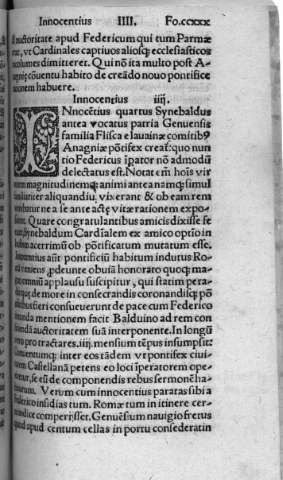 Innocentius IIII. Fo.ccxxx
auctoritate apud Federicum qui tum Parmæ
erat, vt Cardinales captiuos aliosq; ecclesiasticos
incolumes dimitteret. Qui nō ita multo post A-
nagniȩ cōuentu habito de creādo nouo pontifice
habuere.
Innocentius iiij.
INnocētius quartus Synebaldus
antea vocatus patria Genuensis
familia Flisca e lauainæ comitibꝰ
Anagniæ pōtifex creatꝰ: quo nun
tio Federicus īpator nō admodū
delectatus est. Not at em̄ hoīs vir
magnitudinemq; animi antea namq; simul
familiariter aliquandiu vixerant & ob eam rem
batur ne a se ante actȩ vitæ rationem expo-
Quare congratulantibus amicis dixisse fe
Synebaldum Cardīalem ex amico optio in
acerrimū ob pōtificatum mutatum esse.
Innocentius aūt pontificiū habitum indutus Ro-
veniens ꝓdeunte obuiā honorato quoq; ma-
omniū applausu suscipitur, qui statim pera-
de more in consecrandis coronandisq; pō
fieri consueuerunt de pace cum Federico
mentionem facit Balduino ad rem con
auctoritatem suā interponente. In longū
pro tractares .iiij. mensium tēpus insumpsit:
inter eos tādem vt pontifex ciui-
Castellanā petens eo loci īperatorem ope-
se eū de componendis rebus sermonē ha-
Verum cum innocentius paratas sibi a
Federico insidias tum Romæ tum in itinere cer-
indice comperisset. Genuēsium nauigio fretus
apud centum cellas in portu consederat in